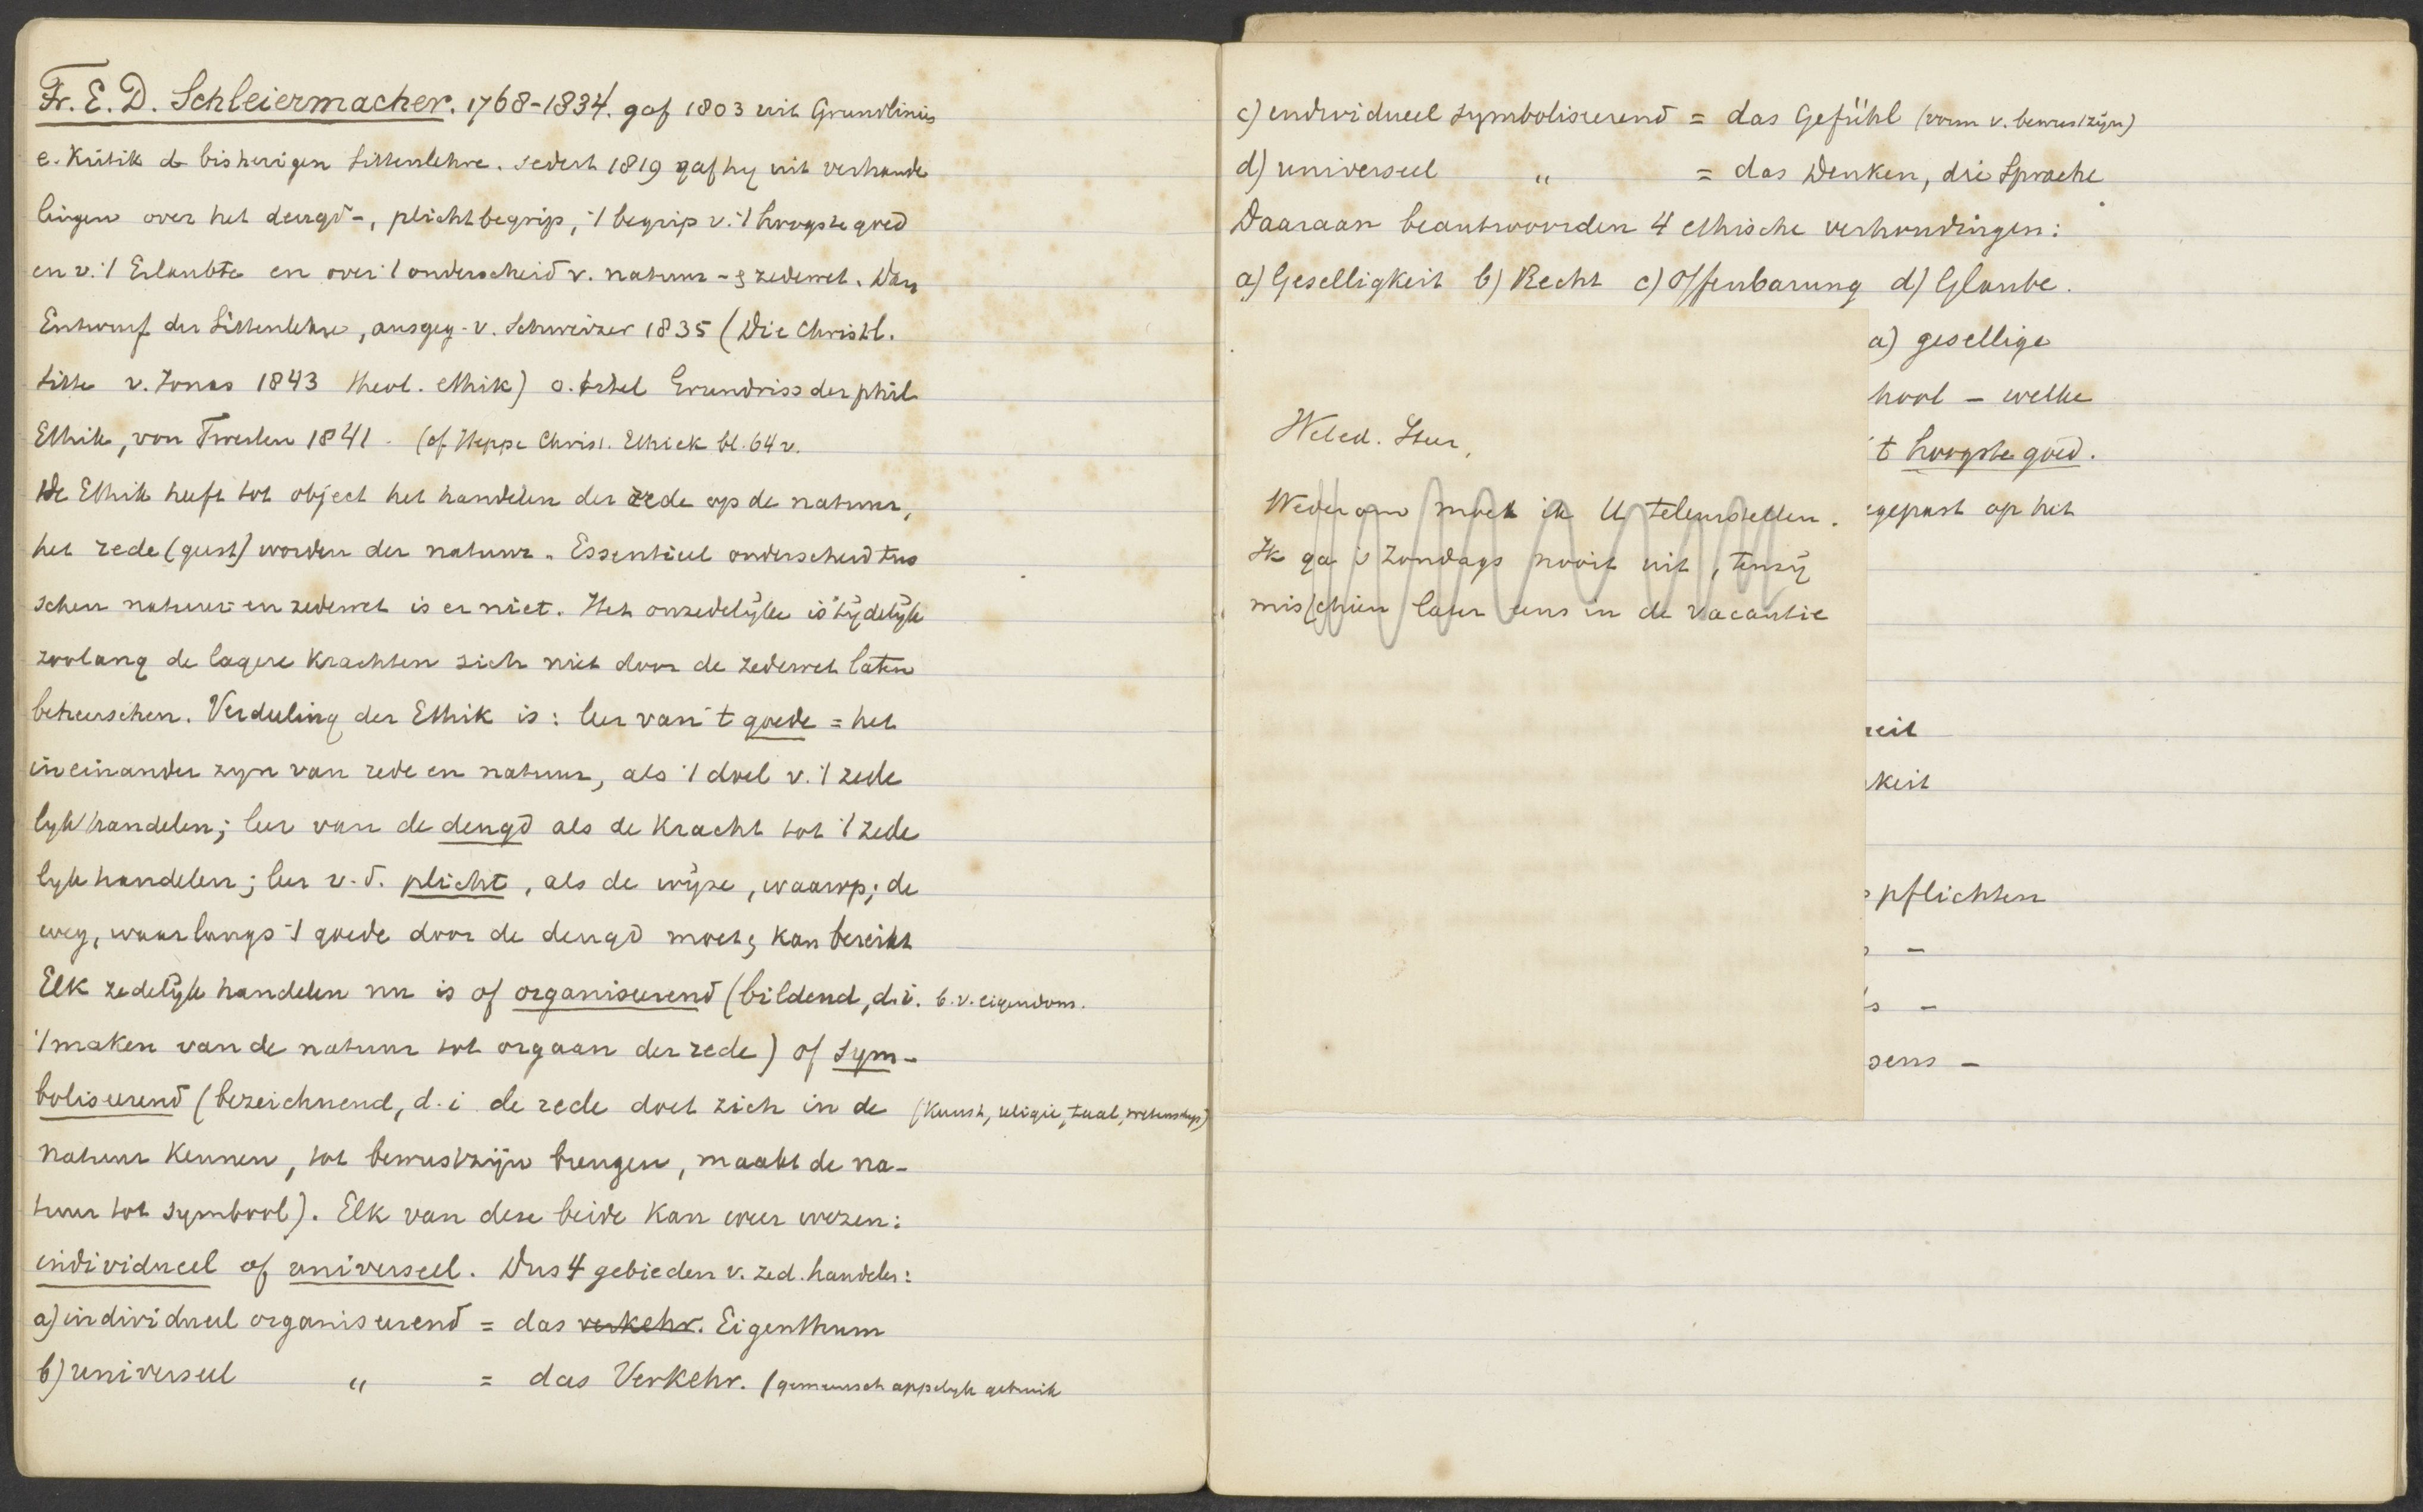 Fr. E. D. Schleiermacher. 1768-1834. gaf 1803 uit Grundlinien
e. Kritik d bisherigen Sittenlehre. sedert 1819 gaf hy uit verhande
lingen over het deugd-, plichtbegrip, 't begrip v. 't hoogste goed
en v. 't Erlaubte en over 't onderscheid v. natuur - & zedewet. Dan
Entwurf der Sittenlehre, ausgeg. v. Schweizer 1835 (Die Christl.
Sitte v. Jonas 1843 theol. ethik) o. titel Grundriss der phil
Ethik, von Twesten 1841. (cf Heppe Christ. Ethiek bl. 64 v.
De Ethik heeft tot object het handelen der rede op de natuur,
het rede (geest) worden der natuur. Essentieel onderscheid tus
schen natuur- en zedewet is er niet. Het onzedelijke is tijdelijk
zoolang de lagere krachten zich niet door de zedewet laten
beheerschen. Verdeeling der Ethik is: leer van 't goede = het
in einander zyn van rede en natuur, als 't doel v. 't zede
lyk handelen; leer van de deugd als de kracht tot 't zede
lyk handelen; leer v. d. plicht, als de wijze, waarop; de
weg, waarlangs 't goede door de deugd moet & kan bereikt
Elk zedelijk handelen nu is of organiseerend (bildend, d.i. b.v. eigendom.
't maken van de natuur tot orgaan der rede) of sym-
boliseerend (bezeichnend, d.i. de rede doet zich in de (Kunst, religie, taal, wetenschap)
natuur kennen, tot bewustzijn brengen, maakt de na-
tuur tot symbool). Elk van deze beide kan weer wezen:
individueel of universeel. Dus 4 gebieden v. zed. handelen:
a) individueel organiseerend = das verkehr. Eigenthum
b) universeel " = das Verkehr. (gemeenschappelyk gebruik
c) individueel symboliseerend = das Gefühl (vorm v. bewustzijn)
d) universeel " = das Denken, die Sprache
Daaraan beantwoorden 4 ethische verhoudingen:
a) Geselligkeit b) Recht c) Offenbarung d) Glaube.
a) gesellige
hool - welke
't hoogste goed.
egepast op het
Weled. Heer,
Wederom moet ik U teleurstellen.
Ik ga 's Zondags nooit uit, tenzij
misschien later eens in de vacantie
heit
keit
pflichten
-
s -
sens -